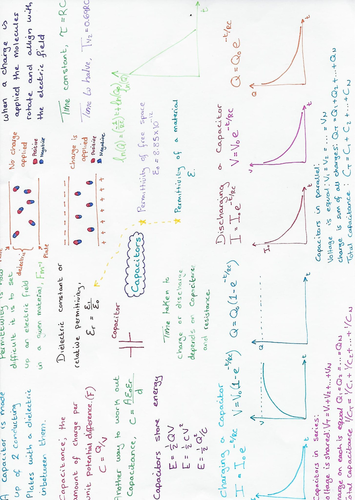 A capacitor is made
up of 2 conducting
plates with a dielectric
inbetween them.
Capacitance, the
amount of charge per
unit potential difference (F)
C = Q/V
Another way to work out
Capacitance, C = Aε₀εᵣ/d
Capacitors store energy
E = ½QV
E = ½CV²
E = ½Q²/C
Charging a capacitor
I = I₀e^-t/RC
V = V₀(1-e^-t/RC)
Q = Q₀(1-e^-t/RC)
Capacitors in series:
Voltage is shared: V_T = V₁ + V₂ + ... + V_N
charge on each is equal Q₁ = Q₂ = ... = Q_N
Total capacitance 1/C_T = 1/C₁ + 1/C₂ + ... + 1/C_N
Permittivity - how
difficult it is to set
up an electric field
in a given material
Dielectric constant or
relative permittivity.
εᵣ = ε/ε₀
capacitor
Capacitors
Time taken to
charge or discharge
depends on capacitance
and resistance.
No charge
applied
Positive
Negative
dielectric
Plate
charge is
applied
Positive
Negative
Permittivity of free space
Permittivity of a material
ε
Discharging a capacitor
V = V₀e^-t/RC
Q = Q₀e^-t/RC
Capacitors in parallel:
Voltage is equal: V₁ = V₂ = ... = V_N
charge is sum of all charges: Q_T = Q₁ + Q₂ + ... + Q_N
Total capacitance: C_T = C₁ + C₂ + ... + C_N
when a charge is
applied the molecules
rotate and allign with
the electric field
Time constant, τ = RC
Time to halve, T½ = 0.69RC